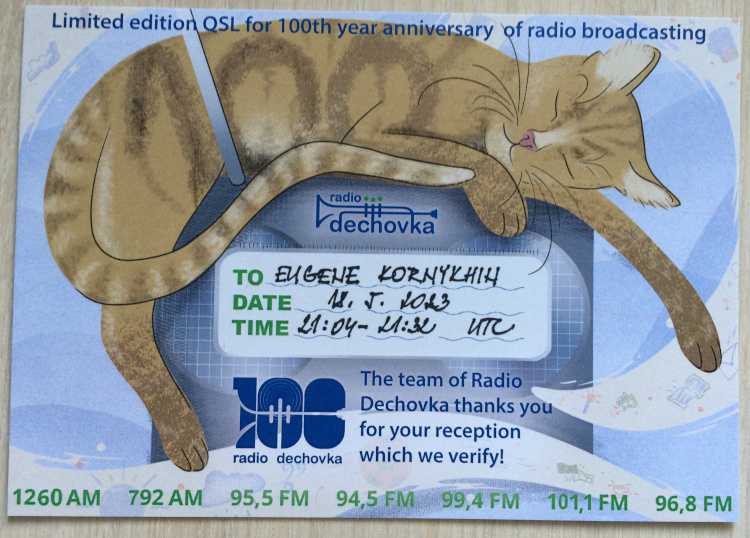 Limited edition QSL for 100th year anniversary of radio broadcasting
radio
dechovka
TO EUGENE KORNYKHIN
DATE 12. 5. 2023
TIME 21:04 - 21:32 UTC
100
radio dechovka
The team of Radio
Dechovka thanks you
for your reception
which we verify!
1260 AM 792 AM 95,5 FM 94,5 FM 99,4 FM 101,1 FM 96,8 FM